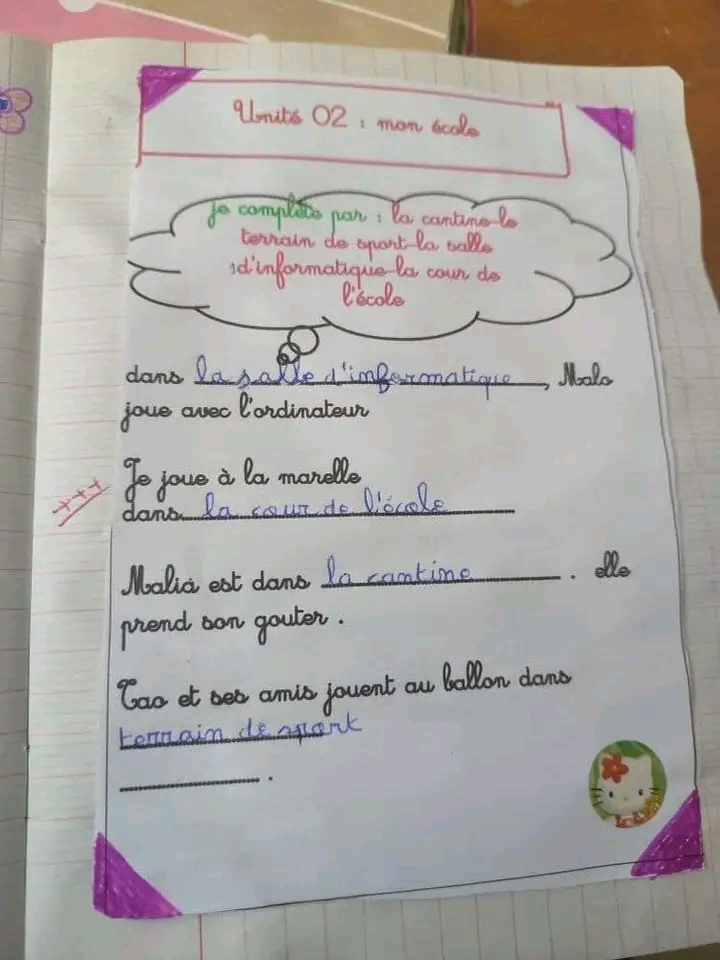 Unité 02 : mon école
je complète par : la cantine-le
terrain de sport-la salle
d'informatique-la cour de
l'école
dans la salle d'informatique, Malo
joue avec l'ordinateur
Je joue à la marelle
dans la cour de l'école
Malia est dans la cantine. elle
prend son gouter.
Tao et ses amis jouent au ballon dans
terrain de sport
.